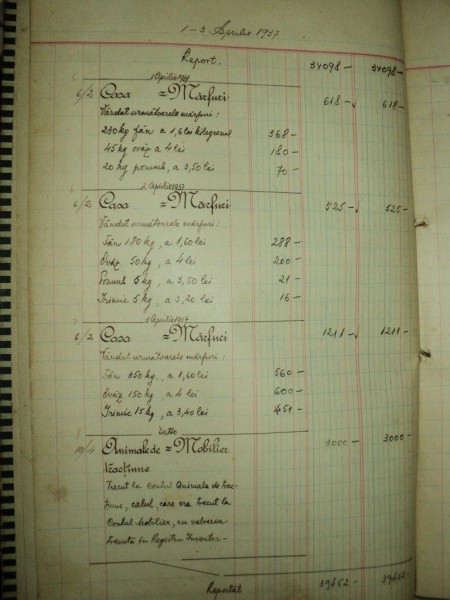 1-3 Aprilie 1937
Report. 34098- 34098-
1 Aprilie 1937
6/2 Casa = Mărfuri 618- 618-
Vândut următoarele mărfuri:
230 kg fân a 1,6 lei kilogramul 368-
45 kg ovăz a 4 lei 180-
20 kg porumb, a 3,50 lei 70-
2 Aprilie 1937
6/2 Casa = Mărfuri 525- 525-
Vândut următoarele mărfuri:
Fân 180 kg, a 1,60 lei 288-
Ovăz 50 kg, a 4 lei 200-
Porumb 6 kg, a 3,50 lei 21-
Tărâțe 5 kg, a 3,20 lei 16-
3 Aprilie 1937
6/2 Casa = Mărfuri 1211- 1211-
Vândut următoarele mărfuri:
Fân 350 kg, a 1,60 lei 560-
Ovăz 150 kg, a 4 lei 600-
15 kg, a 3,40 lei
10/4 Animale de = Mobilier 3000- 3000-
tracțiune
Trecut la contul Animale de trac-
țiune, calul, care era trecut la
Contul Mobilier, cu valoarea
trecută în Registru Inventar-
Reportat 39452- 39452-